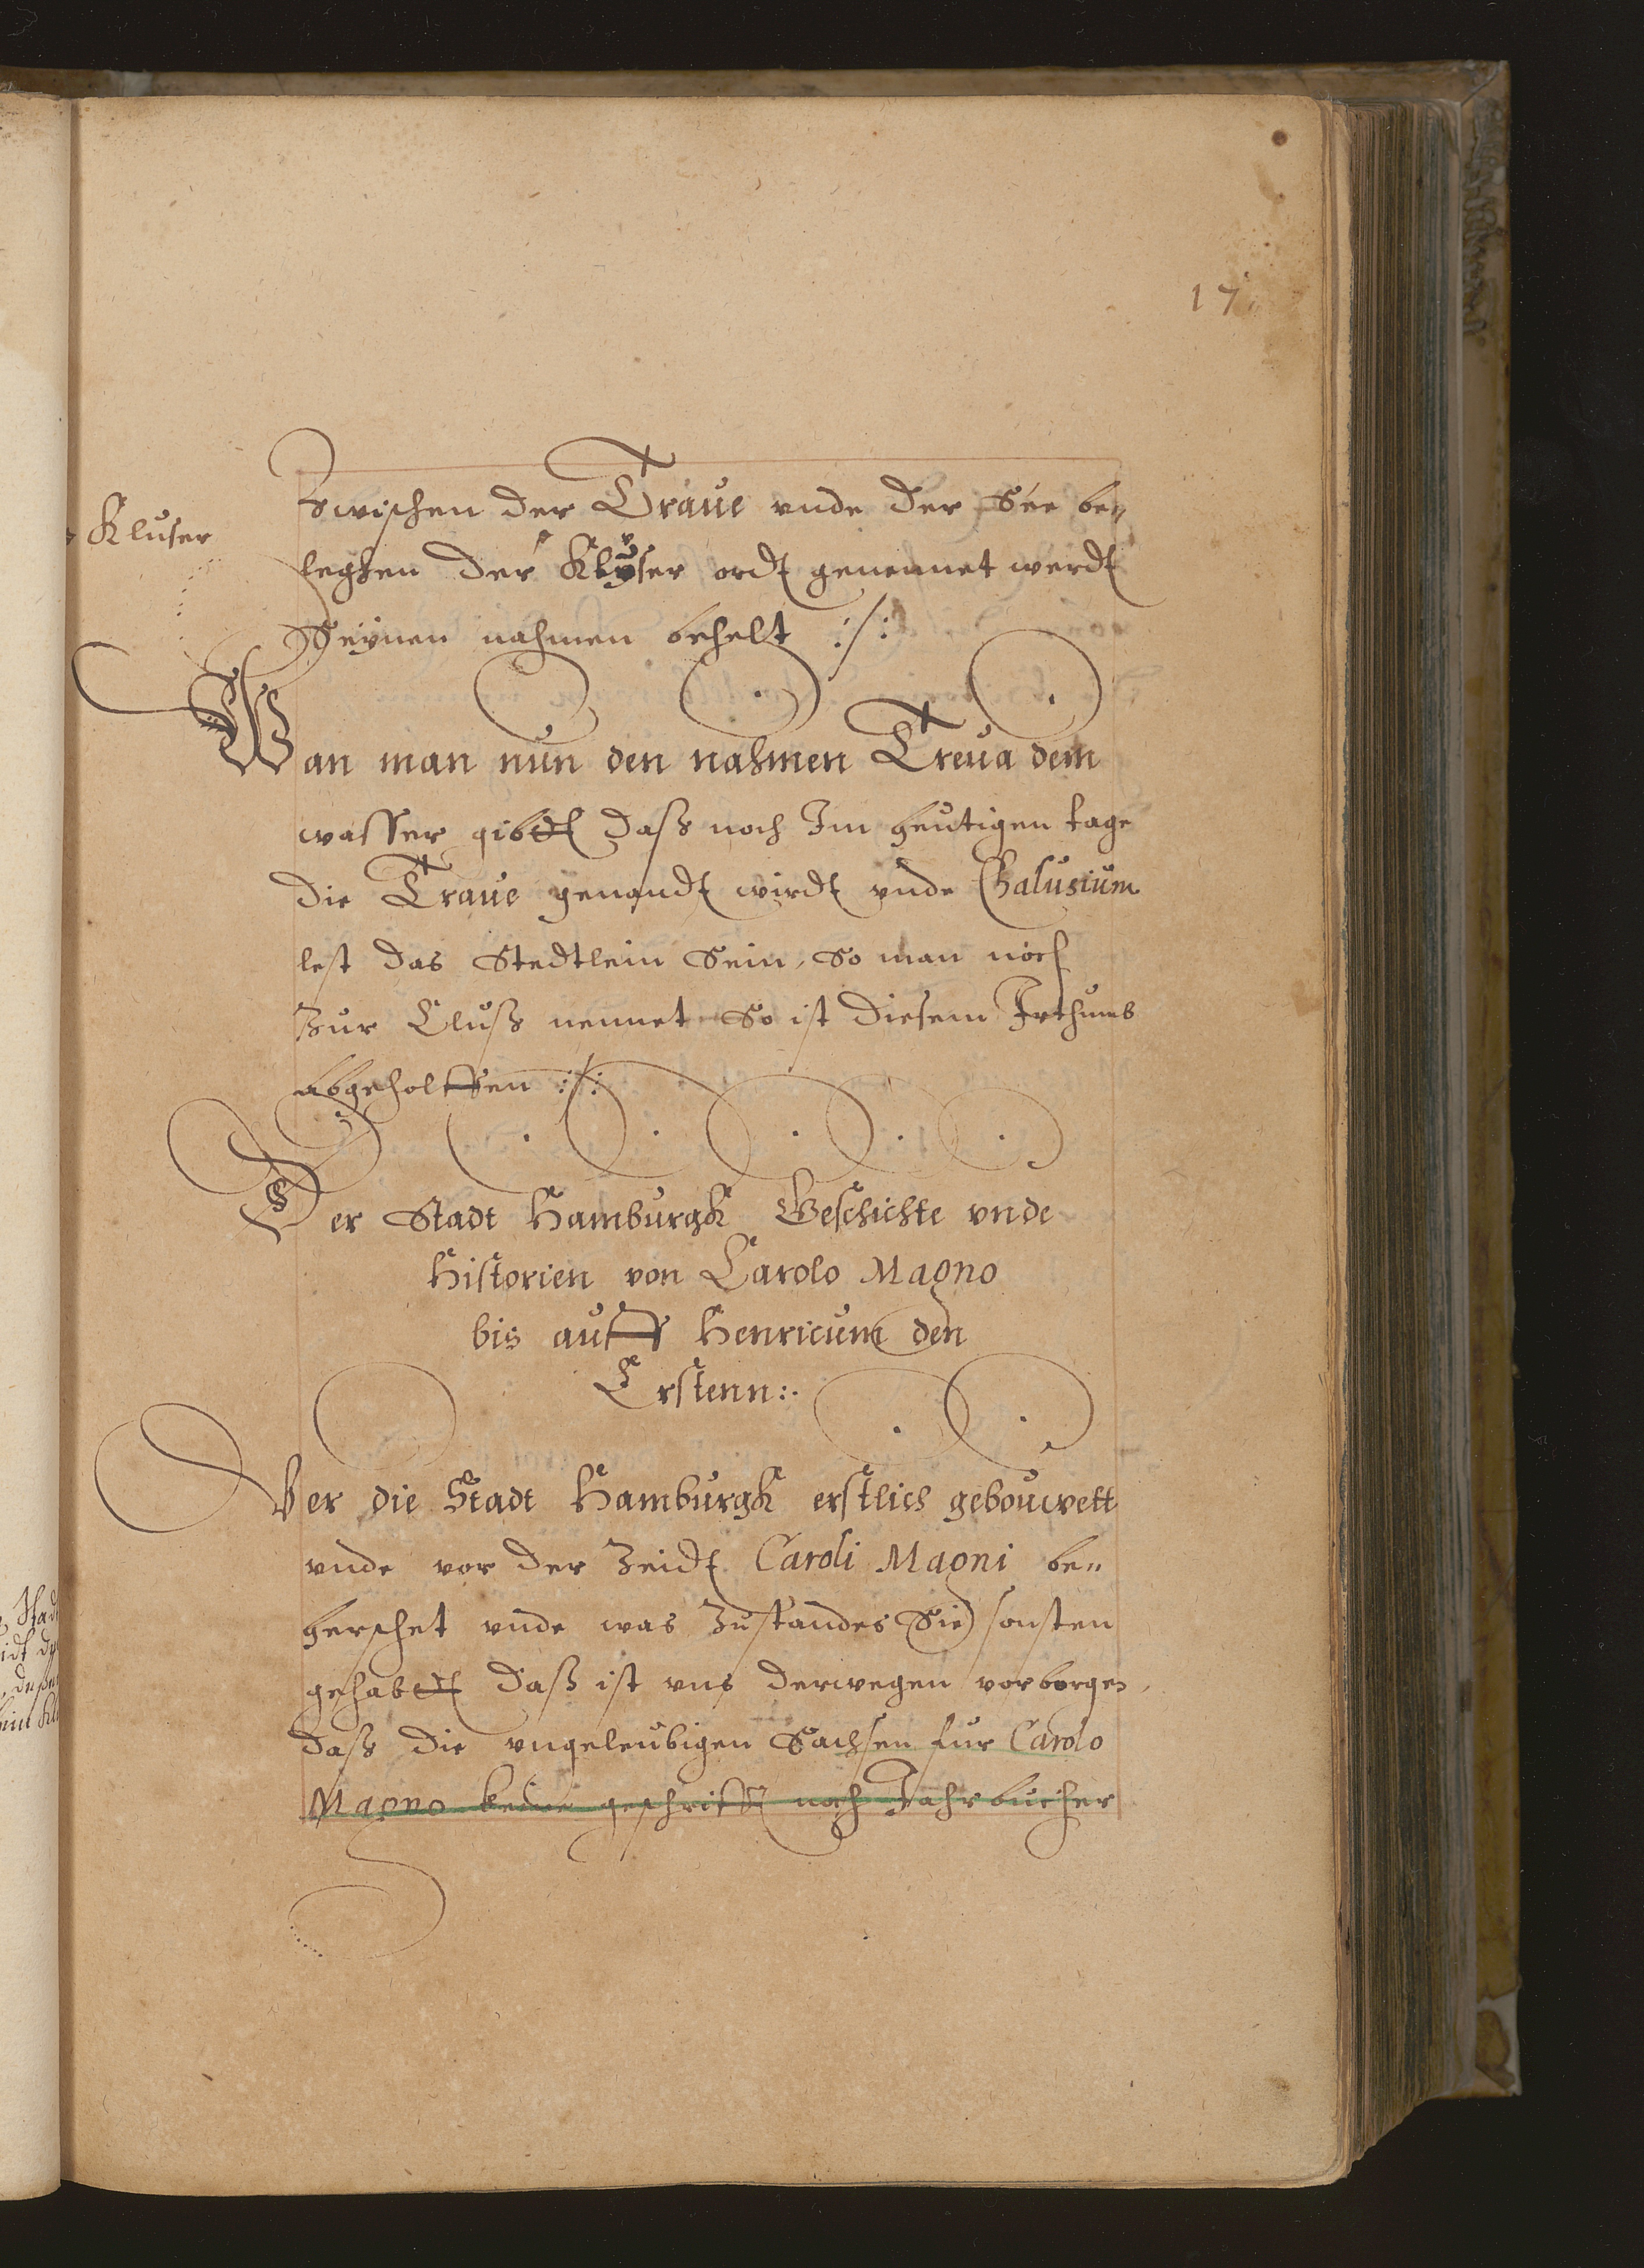 17
Zwischen der Traue vnde der See be„
Kluser
leghen der Klüser ordt genennet werdt
Seynen nahmen behelt :/:
Wan man nun den nahmen Treua dem
wasser gibdt daß noch Im heutigen tage
die Traue genandt wirdt vnde Chalusium
lest das Stedtlein Sein, So man noch
Zur Cluß nennet So ist diesem Irthumb
abgeholffen :/:
Der Stadt Hamburgk Geschichte vnde
Historien von Carolo Magno
bis auff Henricum den
Erstenn:.
Wer die Stadt Hamburgk erstlich gebouwett
vnde vor der Zeidt Caroli Magni be„
herschet vnde was Zustandes Sie sonsten
gehabdt daß ist vns derwegen vorborgen,
daß die vngeleubigen Sachsen fur Carolo
Magno keine geschrifft noch Jahrbucher